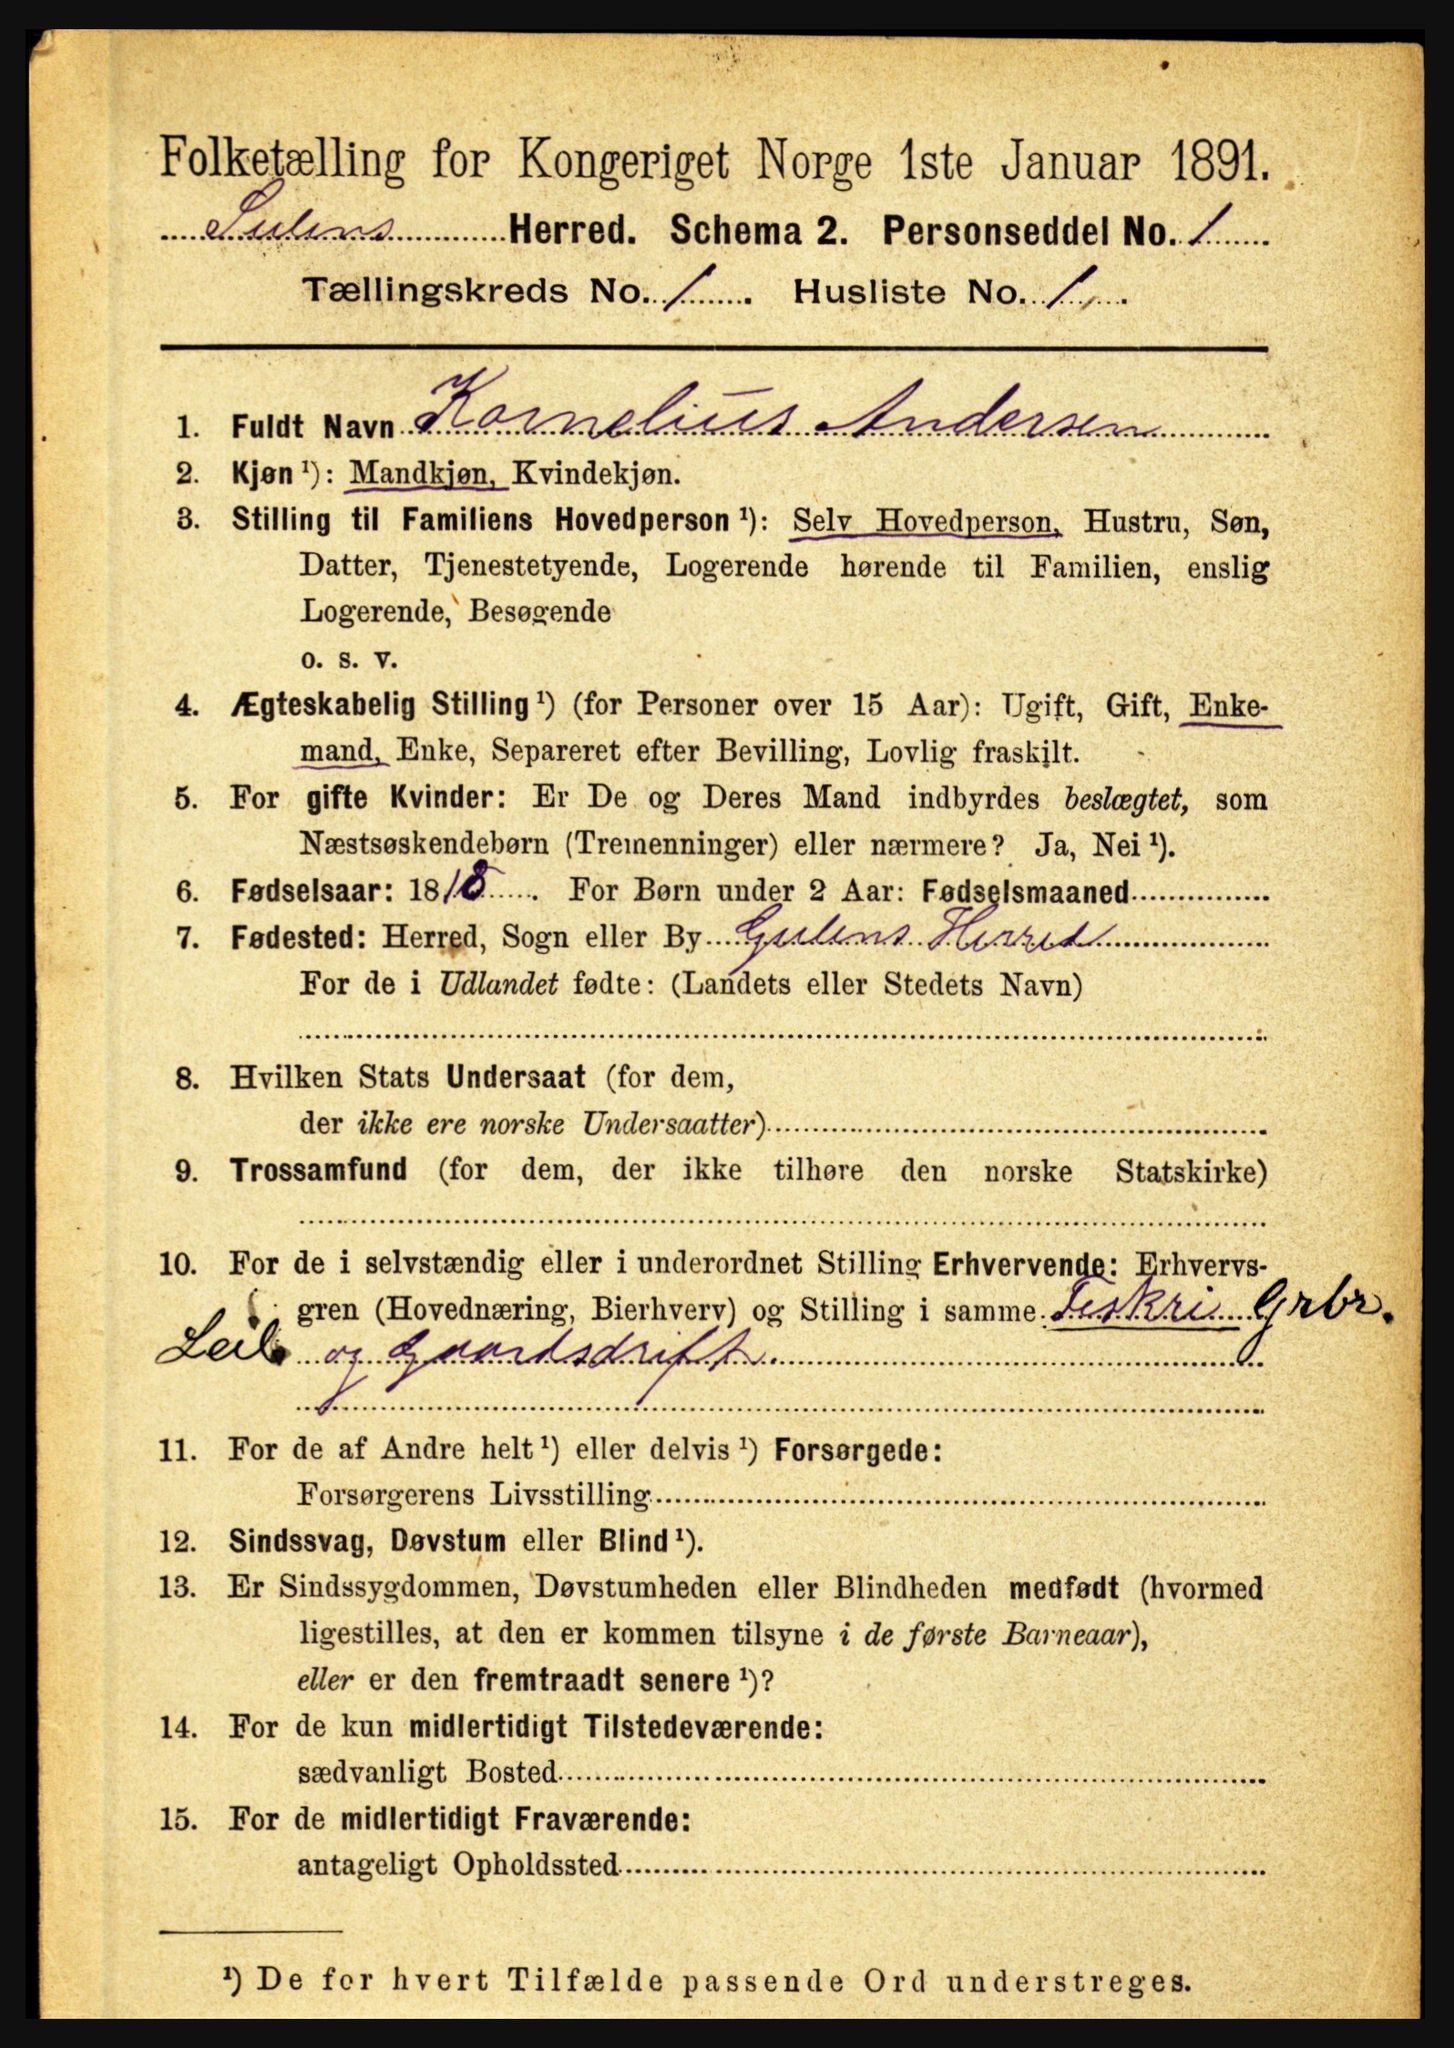 Folketælling for Kongeriget Norge 1ste Januar 1891.
Sulens Herred. Schema 2. Personseddel No. 1
Tællingskreds No. 1. Husliste No. 1.
1. Fuldt Navn Kornelius Andersen
2. Kjøn¹): Mandkjøn, Kvindekjøn.
3. Stilling til Familiens Hovedperson¹): Selv Hovedperson, Hustru, Søn,
Datter, Tjenestetyende, Logerende hørende til Familien, enslig
Logerende, Besøgende
o. s. v.
4. Ægteskabelig Stilling¹) (for Personer over 15 Aar): Ugift, Gift, Enke-
mand, Enke, Separeret efter Bevilling, Lovlig fraskilt.
5. For gifte Kvinder: Er De og Deres Mand indbyrdes beslægtet, som
Næstsøskendebørn (Tremenninger) eller nærmere? Ja, Nei¹).
6. Fødselsaar: 1818. For Børn under 2 Aar: Fødselsmaaned
7. Fødested: Herred, Sogn eller By Gulens Herred
For de i Udlandet fødte: (Landets eller Stedets Navn)
8. Hvilken Stats Undersaat (for dem,
der ikke ere norske Undersaatter)
9. Trossamfund (for dem, der ikke tilhøre den norske Statskirke)
10. For de i selvstændig eller i underordnet Stilling Erhvervende: Erhvervs-
gren (Hovednæring, Bierhverv) og Stilling i samme Fiskri Grbr.
Leil. og Gaardsdrift
11. For de af Andre helt¹) eller delvis¹) Forsørgede:
Forsørgerens Livsstilling
12. Sindssvag, Døvstum eller Blind¹).
13. Er Sindssygdommen, Døvstumheden eller Blindheden medfødt (hvormed
ligestilles, at den er kommen tilsyne i de første Barneaar),
eller er den fremtraadt senere¹)?
14. For de kun midlertidigt Tilstedeværende:
sædvanligt Bosted
15. For de midlertidigt Fraværende:
antageligt Opholdssted
¹) De for hvert Tilfælde passende Ord understreges.